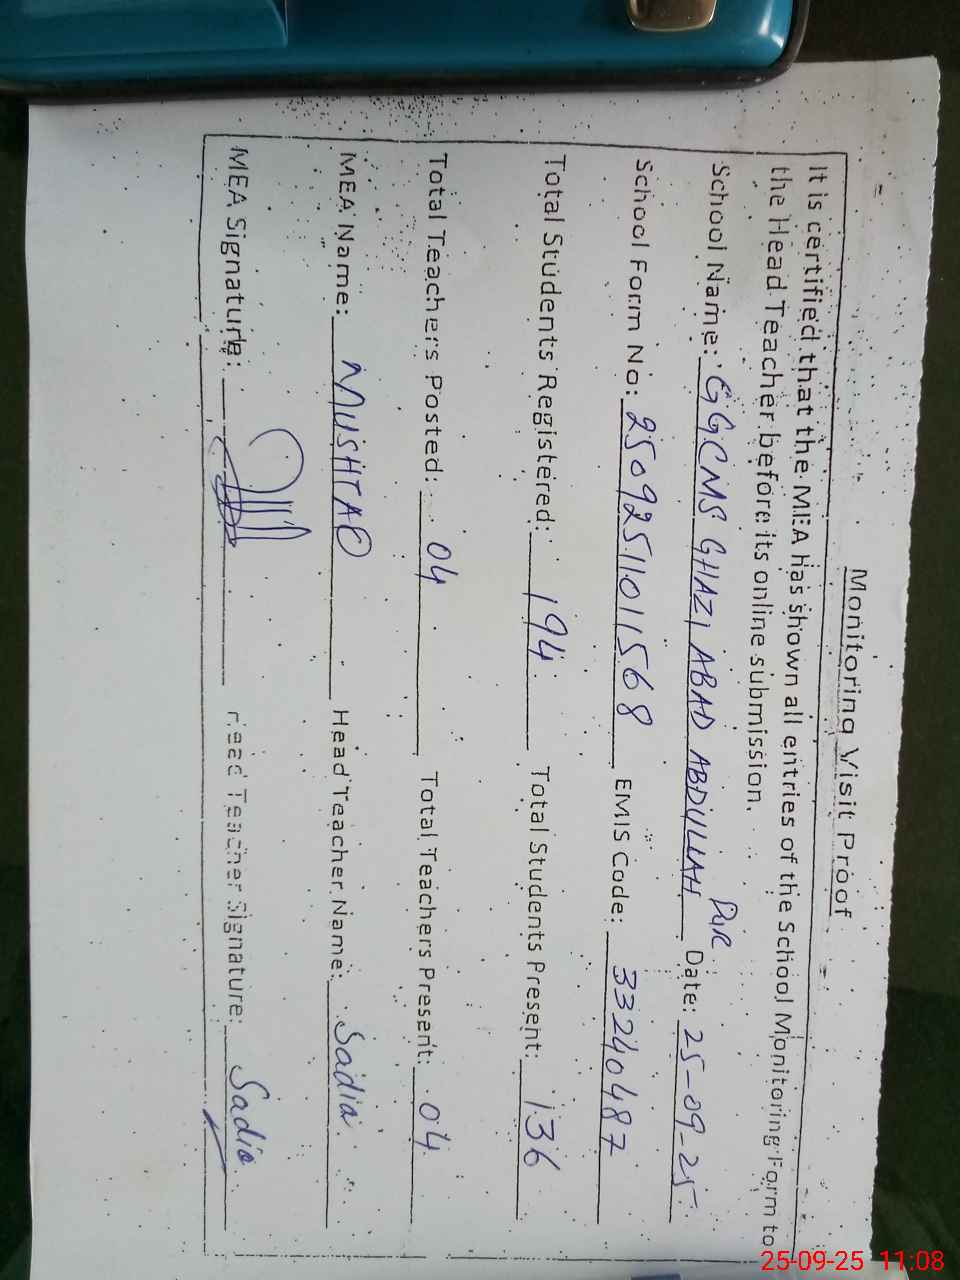 Monitoring Visit Proof
It is certified that the MEA has shown all entries of the School Monitoring Form to
the Head Teacher before its online submission.
School Name: GGCMS GHAZI ABAD ABDULLAH PUR Date: 25-09-25
School Form No: 25092511011568 EMIS Code: 33240487
Total Students Registered: 194 Total Students Present: 136
Total Teachers Posted: 04 Total Teachers Present: 04
MEA Name: MUSHTAQ Head Teacher Name: Sadia
MEA Signature: Head Teacher Signature: Sadia
25-09-25 11:08